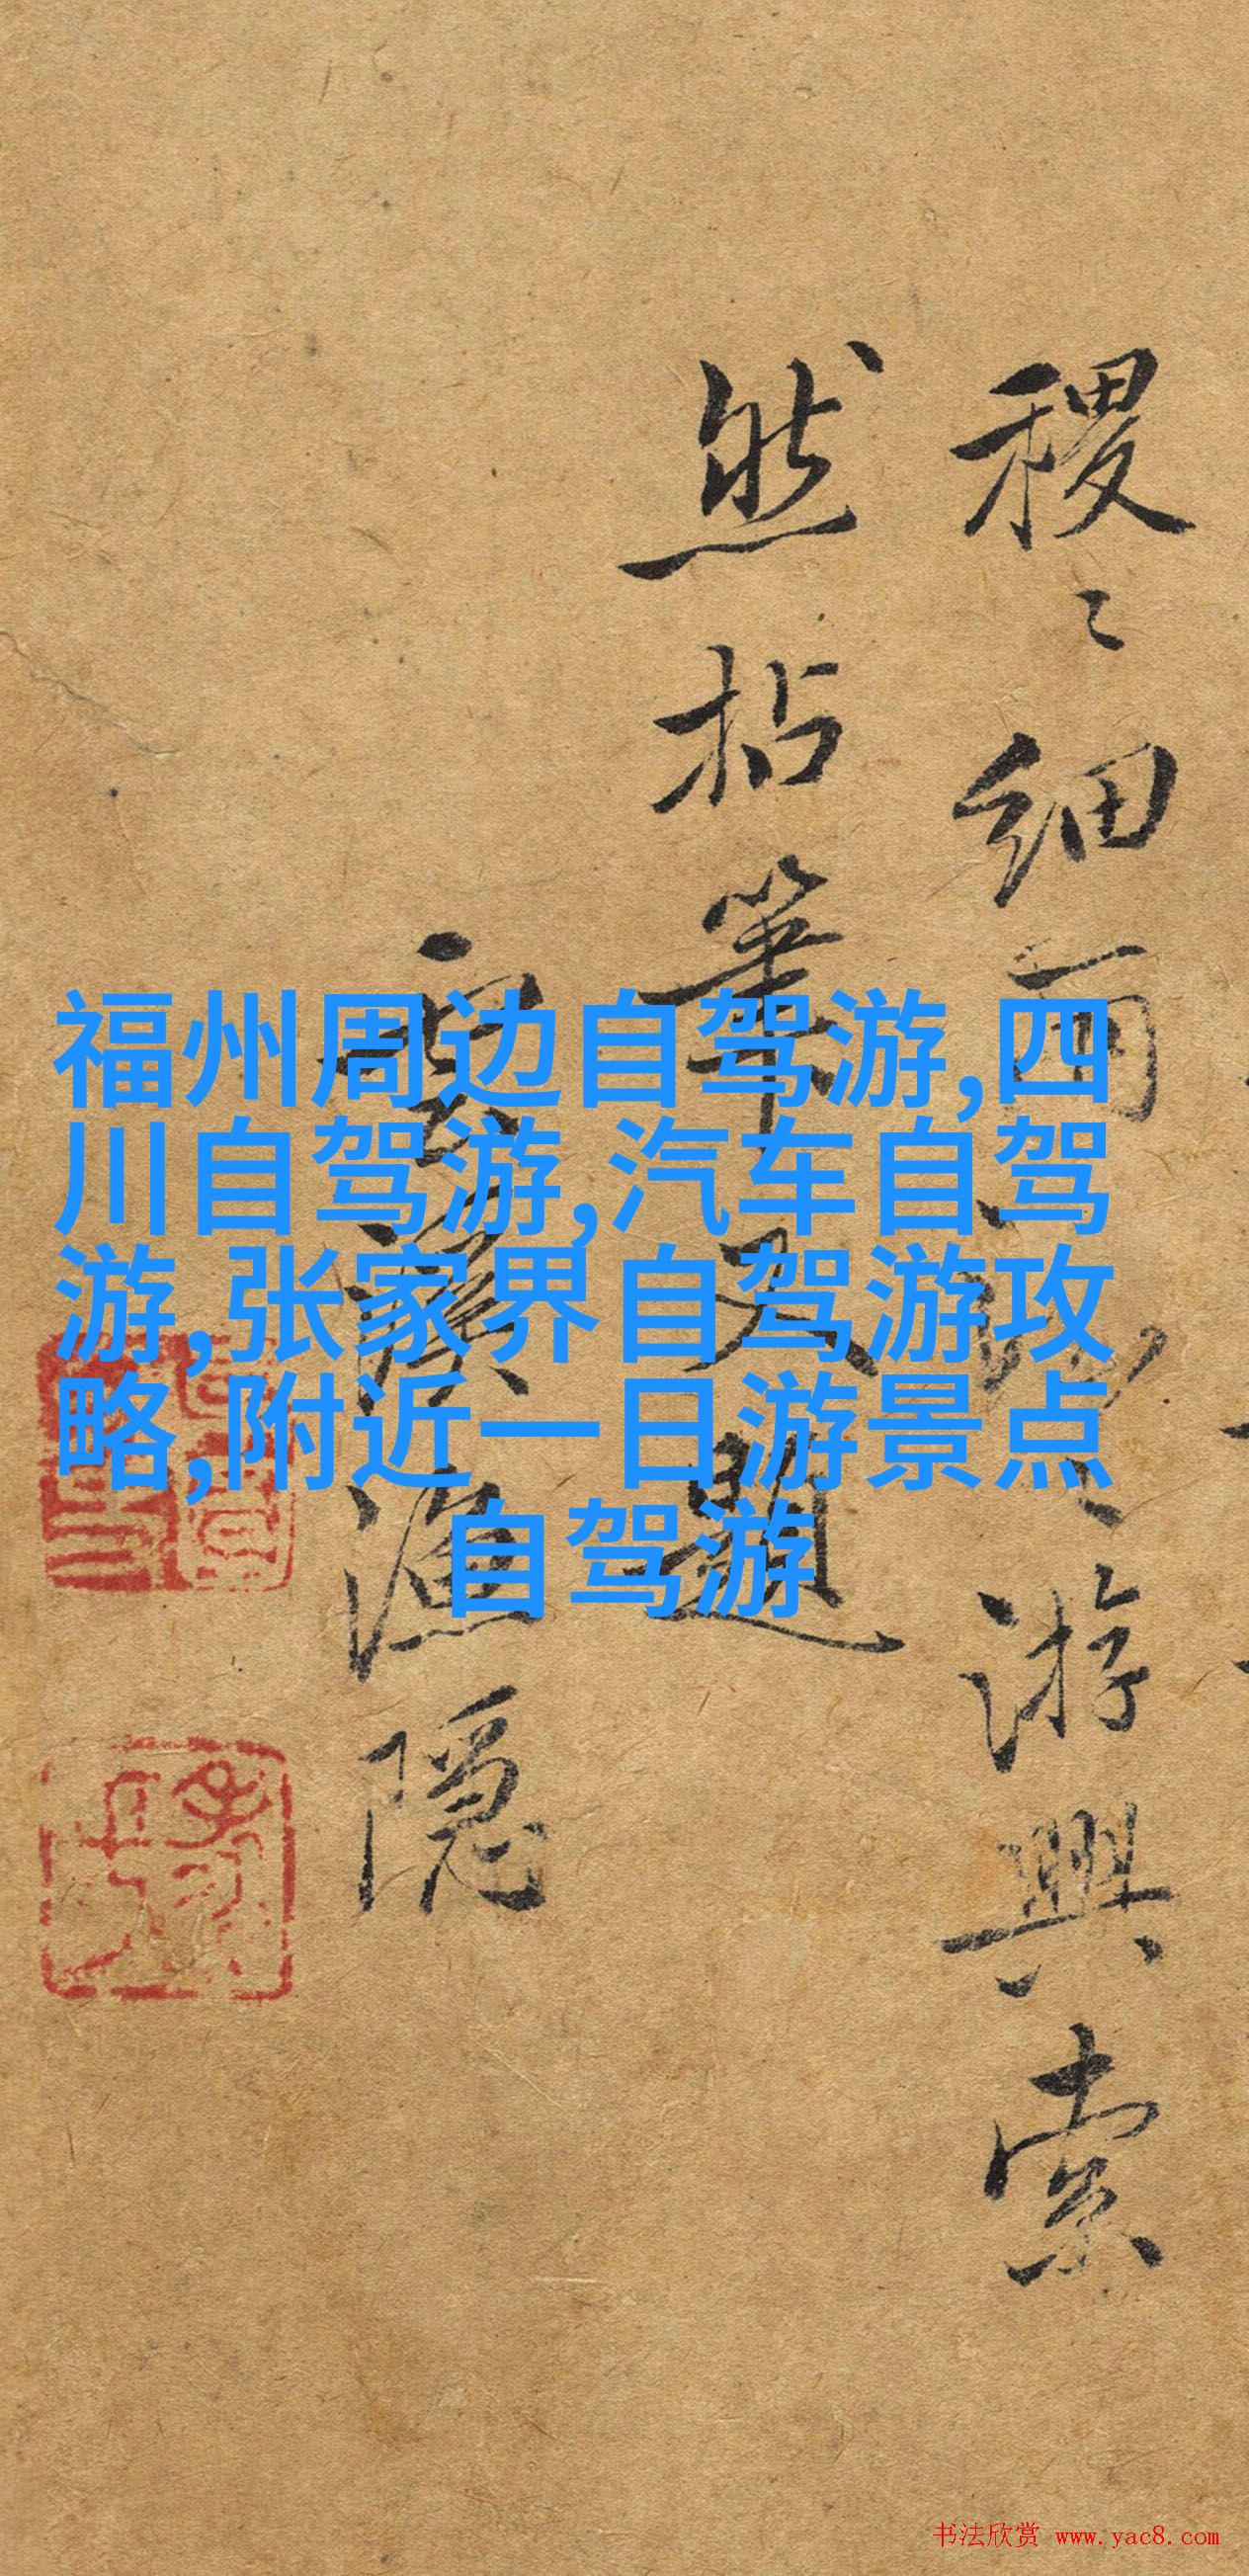 稷〻細雨
游興索
然拈筆又題
雲溪漁隠
福州周边自驾游,四
川自驾游,汽车自驾
游,张家界自驾游攻
略,附近一日游景点
自驾游
书法欣赏 www.yac8.com